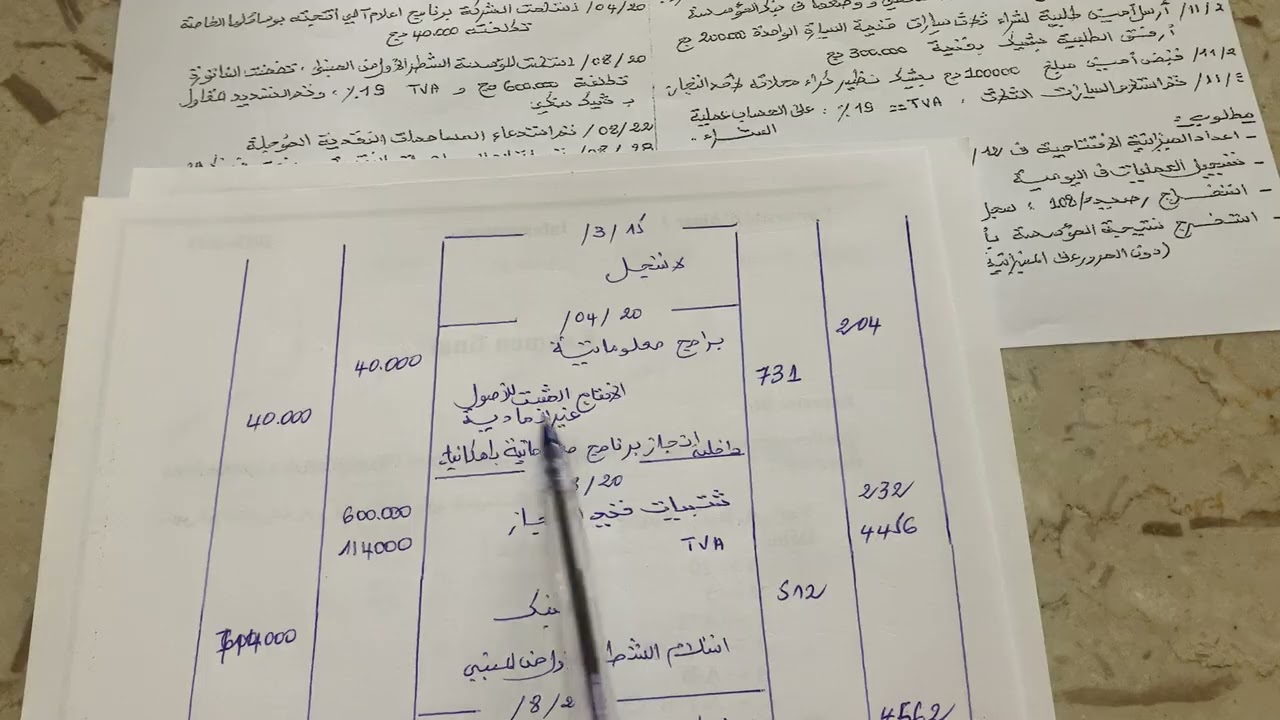 04/20/ استلمت الشركة برنامج اعلام آلي أنتجته بوسائلها الخاصة
تكلفته 40.000 دج
08/20/ استلمت المؤسسة الشطر الأول من المبنى، تضمنت الفاتورة
تكلفة 600.000 دج و TVA 19٪، وتم التسديد مقاول
ب شيك بنكي
08/22/ تم استدعاء المساهمات النقدية المؤجلة
11/2/ أرسل أمين طلبية لشراء ثلاث سيارات قيمة السيارة الواحدة 200.000 دج
أرفق الطلبية بشيك بقيمة 300.000 دج
11/2/ قبض أمين مبلغ 100000 دج بشيك نظير كراء محلاته لأحد التجار
11/4/ تم استلام السيارات الثلاث، TVA = 19٪ : على الحساب عملية
الشراء..
مطلوب:
- اعداد الميزانية الافتتاحية في 12/
- تسجيل العمليات في اليومية
- استخراج رصيد ح/108، سجل
- استخرج نتيجة المؤسسة
(دون المرور على الميزانية
/3/15
لا تسجل
/04/20
204 برامج معلوماتية 40.000
731 الانتاج المثبت للأصول 40.000
غير المادية
انجاز برنامج بإمكانيات داخلية
/20
232 تثبيتات قيد 600.000
4456 TVA 114000
512 بنك 714.000
استلام الشطر للمبنى
/8/2
4562